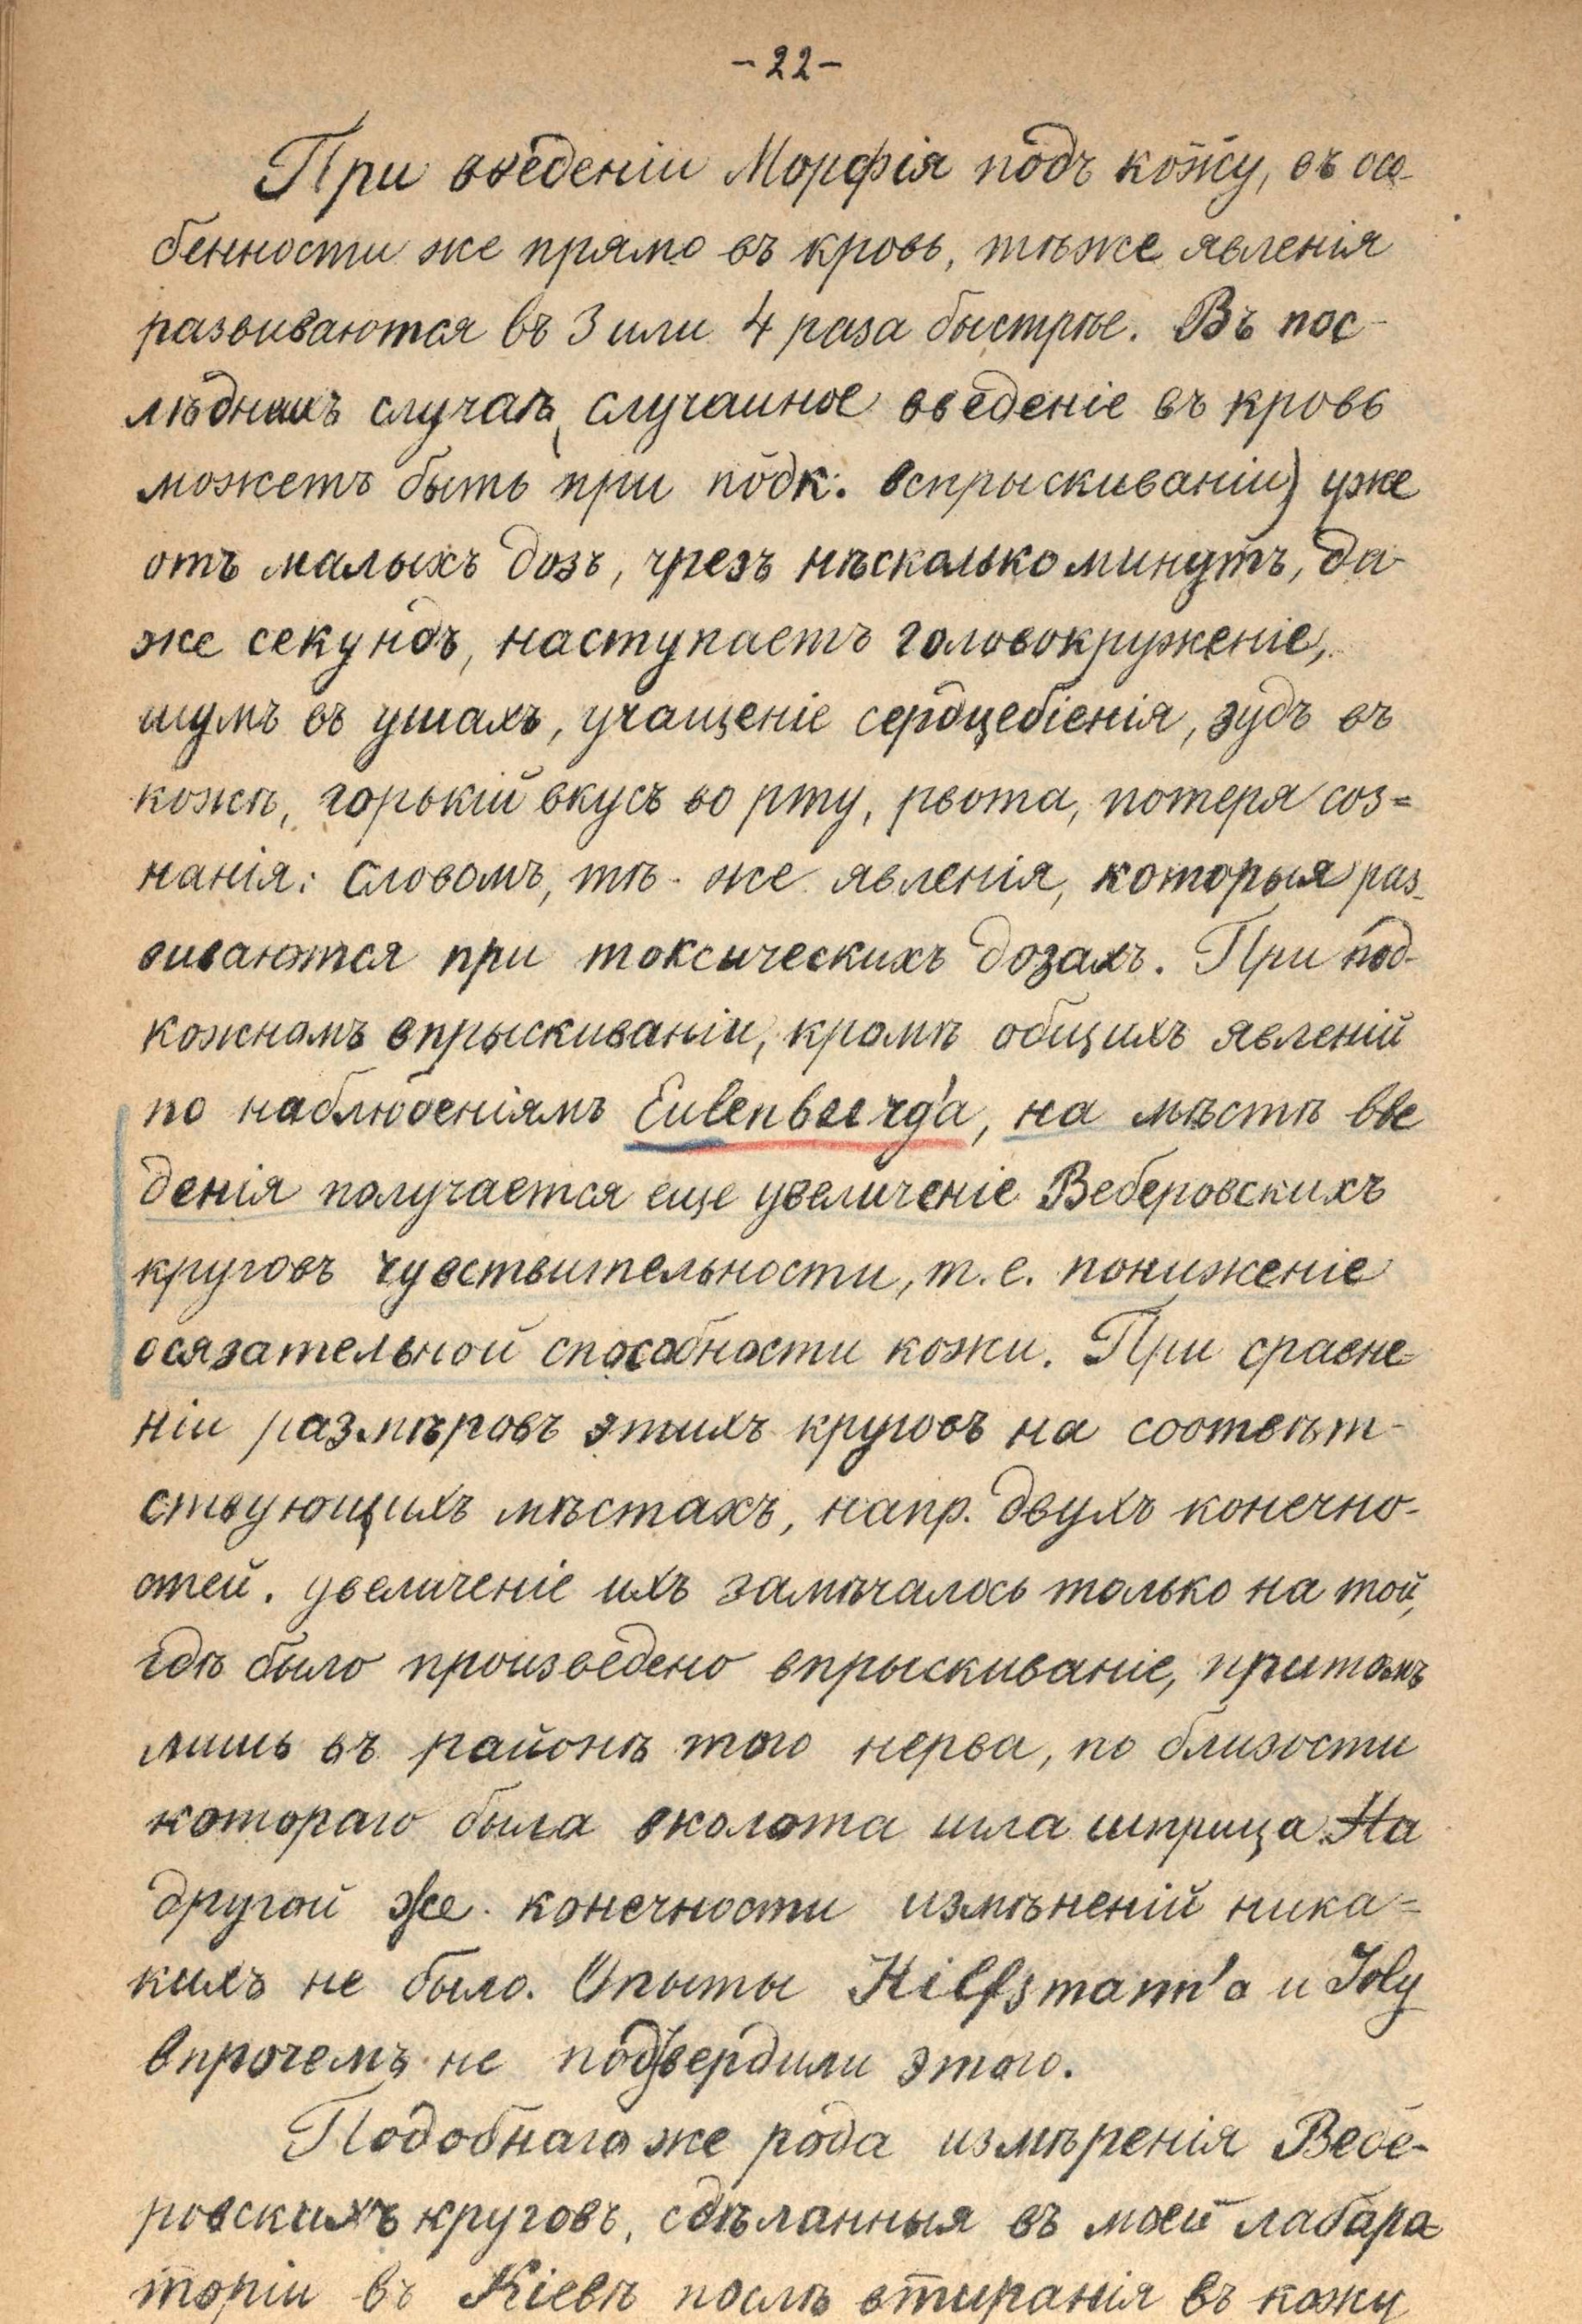 -22-
При введеніи Морфія подъ кожу, въ осо-
бенности же прямо въ кровь, тѣже явленія
развиваются въ 3 или 4 раза быстрѣе. Въ пос-
лѣднихъ случаѣ (случайное введеніе въ кровь
можетъ быть при подк. вспрыскиваніи) уже
отъ малыхъ дозъ, чрезъ нѣсколько минутъ, да-
же секундъ, наступаетъ головокруженіе,
шумъ въ ушахъ, учащеніе сердцебіенія, зудъ въ
кожѣ, горькій вкусъ во рту, рвота, потеря соз=
нанія: словомъ, тѣ-же явленія, которыя раз-
виваются при токсическихъ дозахъ. При под-
кожномъ впрыскиваніи, кромѣ общихъ явленій
по наблюденіямъ Eulenburg'а, на мѣстѣ вве
денія получается еще увеличеніе Веберовскихъ
круговъ чувствительности, т.е. пониженіе
осязательной способности кожи. При сравне-
ніи размѣровъ этихъ круговъ на соотвѣт-
ствующихъ мѣстахъ, напр. двухъ конечно-
стей. увеличеніе ихъ замѣчалось только на той,
гдѣ было произведено впрыскиваніе, притомъ
лишь въ районѣ того нерва, по близости
котораго была вколота игла шприца. На
другой же конечности измѣненій ника=
кихъ не было. Опыты Hilfsmann'а и Joly
впрочемъ не подтвердили этого.
Подобнаго же рода измѣренія Вебе-
ровскихъ круговъ, сдѣланныя въ моей лабара-
торіи въ Кіевѣ послѣ втиранія въ кожу